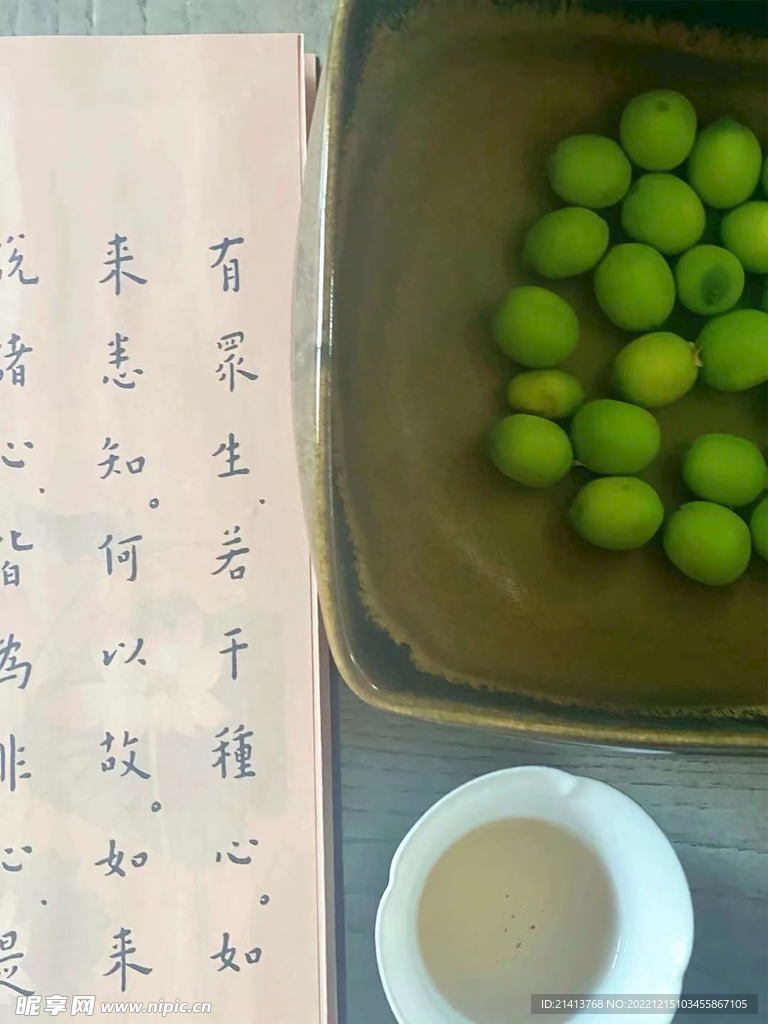 有眾生.若干種心。如
来悉知。何以故。如来
説諸心.皆為非心.是
昵享网 www.nipic.cn
ID:21413768 NO:20221215103455867105